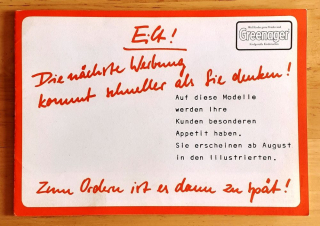 Eilt!
Greenager
Die nächste Werbung
kommt schneller als Sie denken!
Auf diese Modelle
werden Ihre
Kunden besonderen
Appetit haben.
Sie erscheinen ab August
in den Illustrierten.
Zum Ordern ist es dann zu spät!